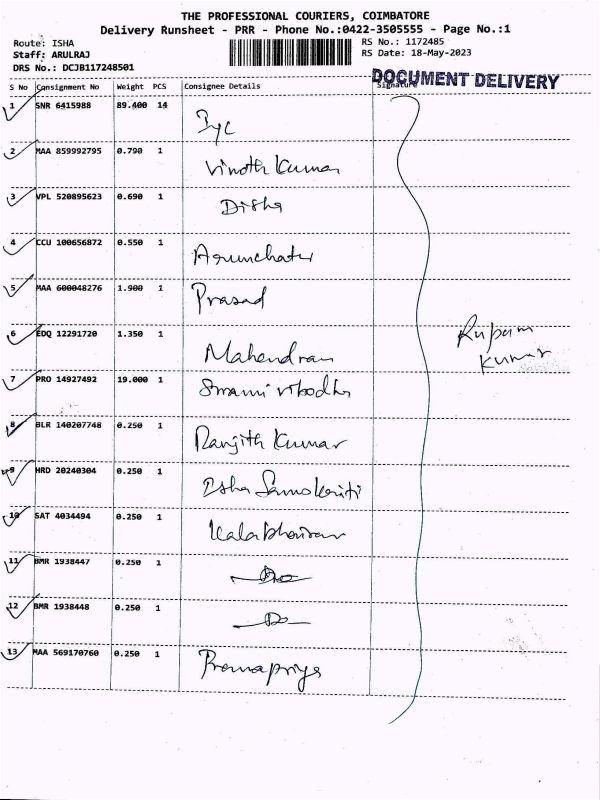 THE PROFESSIONAL COURIERS, COIMBATORE
Delivery Runsheet - PRR - Phone No.:0422-3505555 - Page No.:1
Route: ISHA
RS No.: 1172485
Staff: ARULRAJ
RS Date: 18-May-2023
DRS No.: DCJB117248501
DOCUMENT DELIVERY
S No Consignment No Weight PCS Consignee Details Signature
1 SNR 6415988 89.400 14
2 MAA 859992795 0.790 1 Vinoth Kumar
3 VPL 520895623 0.690 1 Disha
4 CCU 100656872 0.550 1
5 MAA 600048276 1.900 1 Prasad
6 EDQ 12291720 1.350 1 Mahendran
7 PRO 14927492 19.000 1 Swami
8 BLR 140207748 0.250 1 Ranjith Kumar
9 HRD 20240304 0.250 1 Isha
10 SAT 4034494 0.250 1
11 BMR 1938447 0.250 1 Do
12 BMR 1938448 0.250 1 Do
13 MAA 569170760 0.250 1
Rupam
Kumar